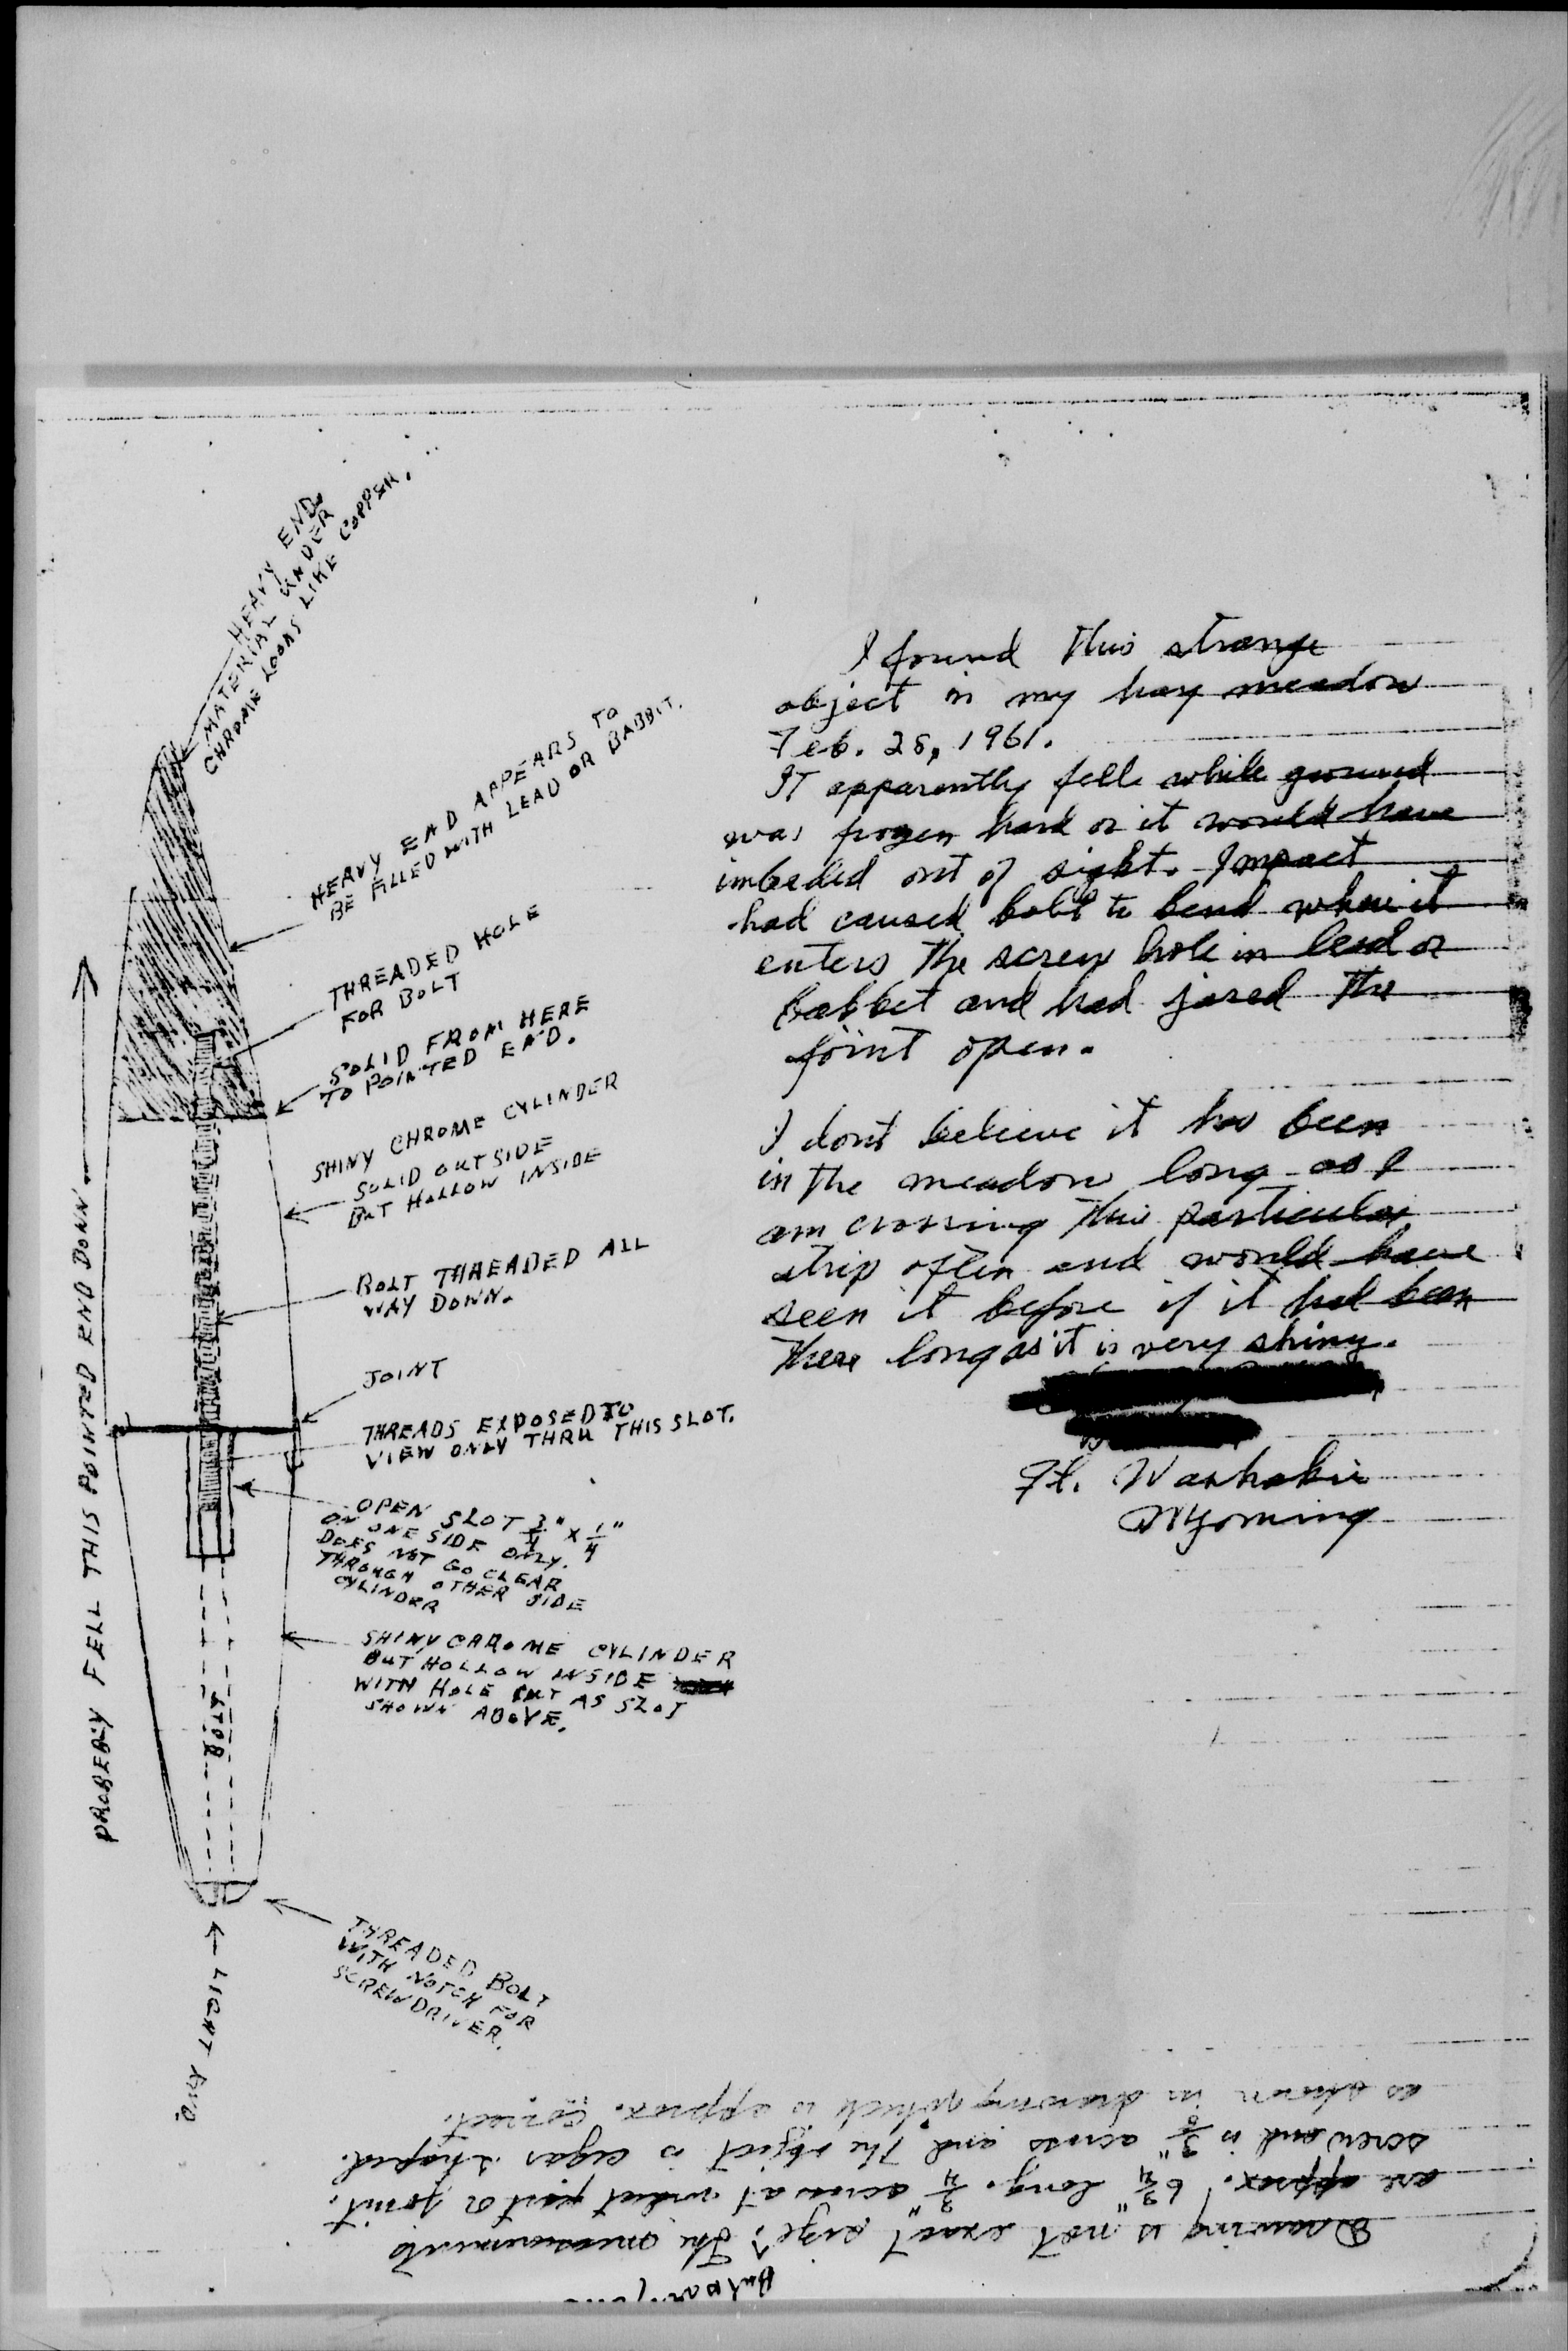 HEAVY END.
MATERIAL UNDER
CHROME LOOKS LIKE COPPER.
HEAVY END APPEARS TO
BE FILLED WITH LEAD OR BABBIT.
THREADED HOLE
FOR BOLT
SOLID FROM HERE
TO POINTED END.
SHINY CHROME CYLINDER
SOLID OUTSIDE
BUT HOLLOW INSIDE
BOLT THREADED ALL
WAY DOWN.
JOINT
THREADS EXPOSED TO
VIEW ONLY THRU THIS SLOT.
OPEN SLOT 3/4" x 1/4"
ON ONE SIDE ONLY.
DOES NOT GO CLEAR
THROUGH OTHER SIDE
CYLINDER
SHINY CHROME CYLINDER
BUT HOLLOW INSIDE
WITH HOLE CUT AS SLOT
SHOWN ABOVE.
BOLT
THREADED BOLT
WITH NOTCH FOR
SCREWDRIVER.
LIGHT END
PROBEBLY FELL THIS POINTED END DOWN
I found this strange
object in my hay meadow
Feb. 28, 1961.
IT apparently fell while ground
was frozen hard or it would have
imbeded out of sight. Impact
had caused bolt to bend where it
enters the screw hole in lead or
babbet and had jared the
joint open.
I dont believe it has been
in the meadow long as I
am crossing this particular
strip often and would have
seen it before if it had been
there long as it is very shiny.
Ft. Washakie
Wyoming
Drawing is not exact size; the measurements
are approx. 6 3/4" long. 3/4" across at widest part or joint.
screw end is 3/8" across and the object is cigar shaped.
as shown in drawing which is approx. correct.